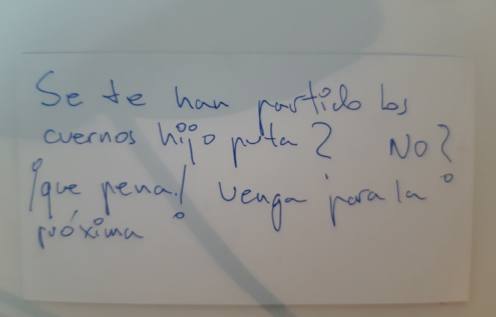 Se te han partido los
cuernos hijo puta? No?
¡que pena! Venga para la
próxima